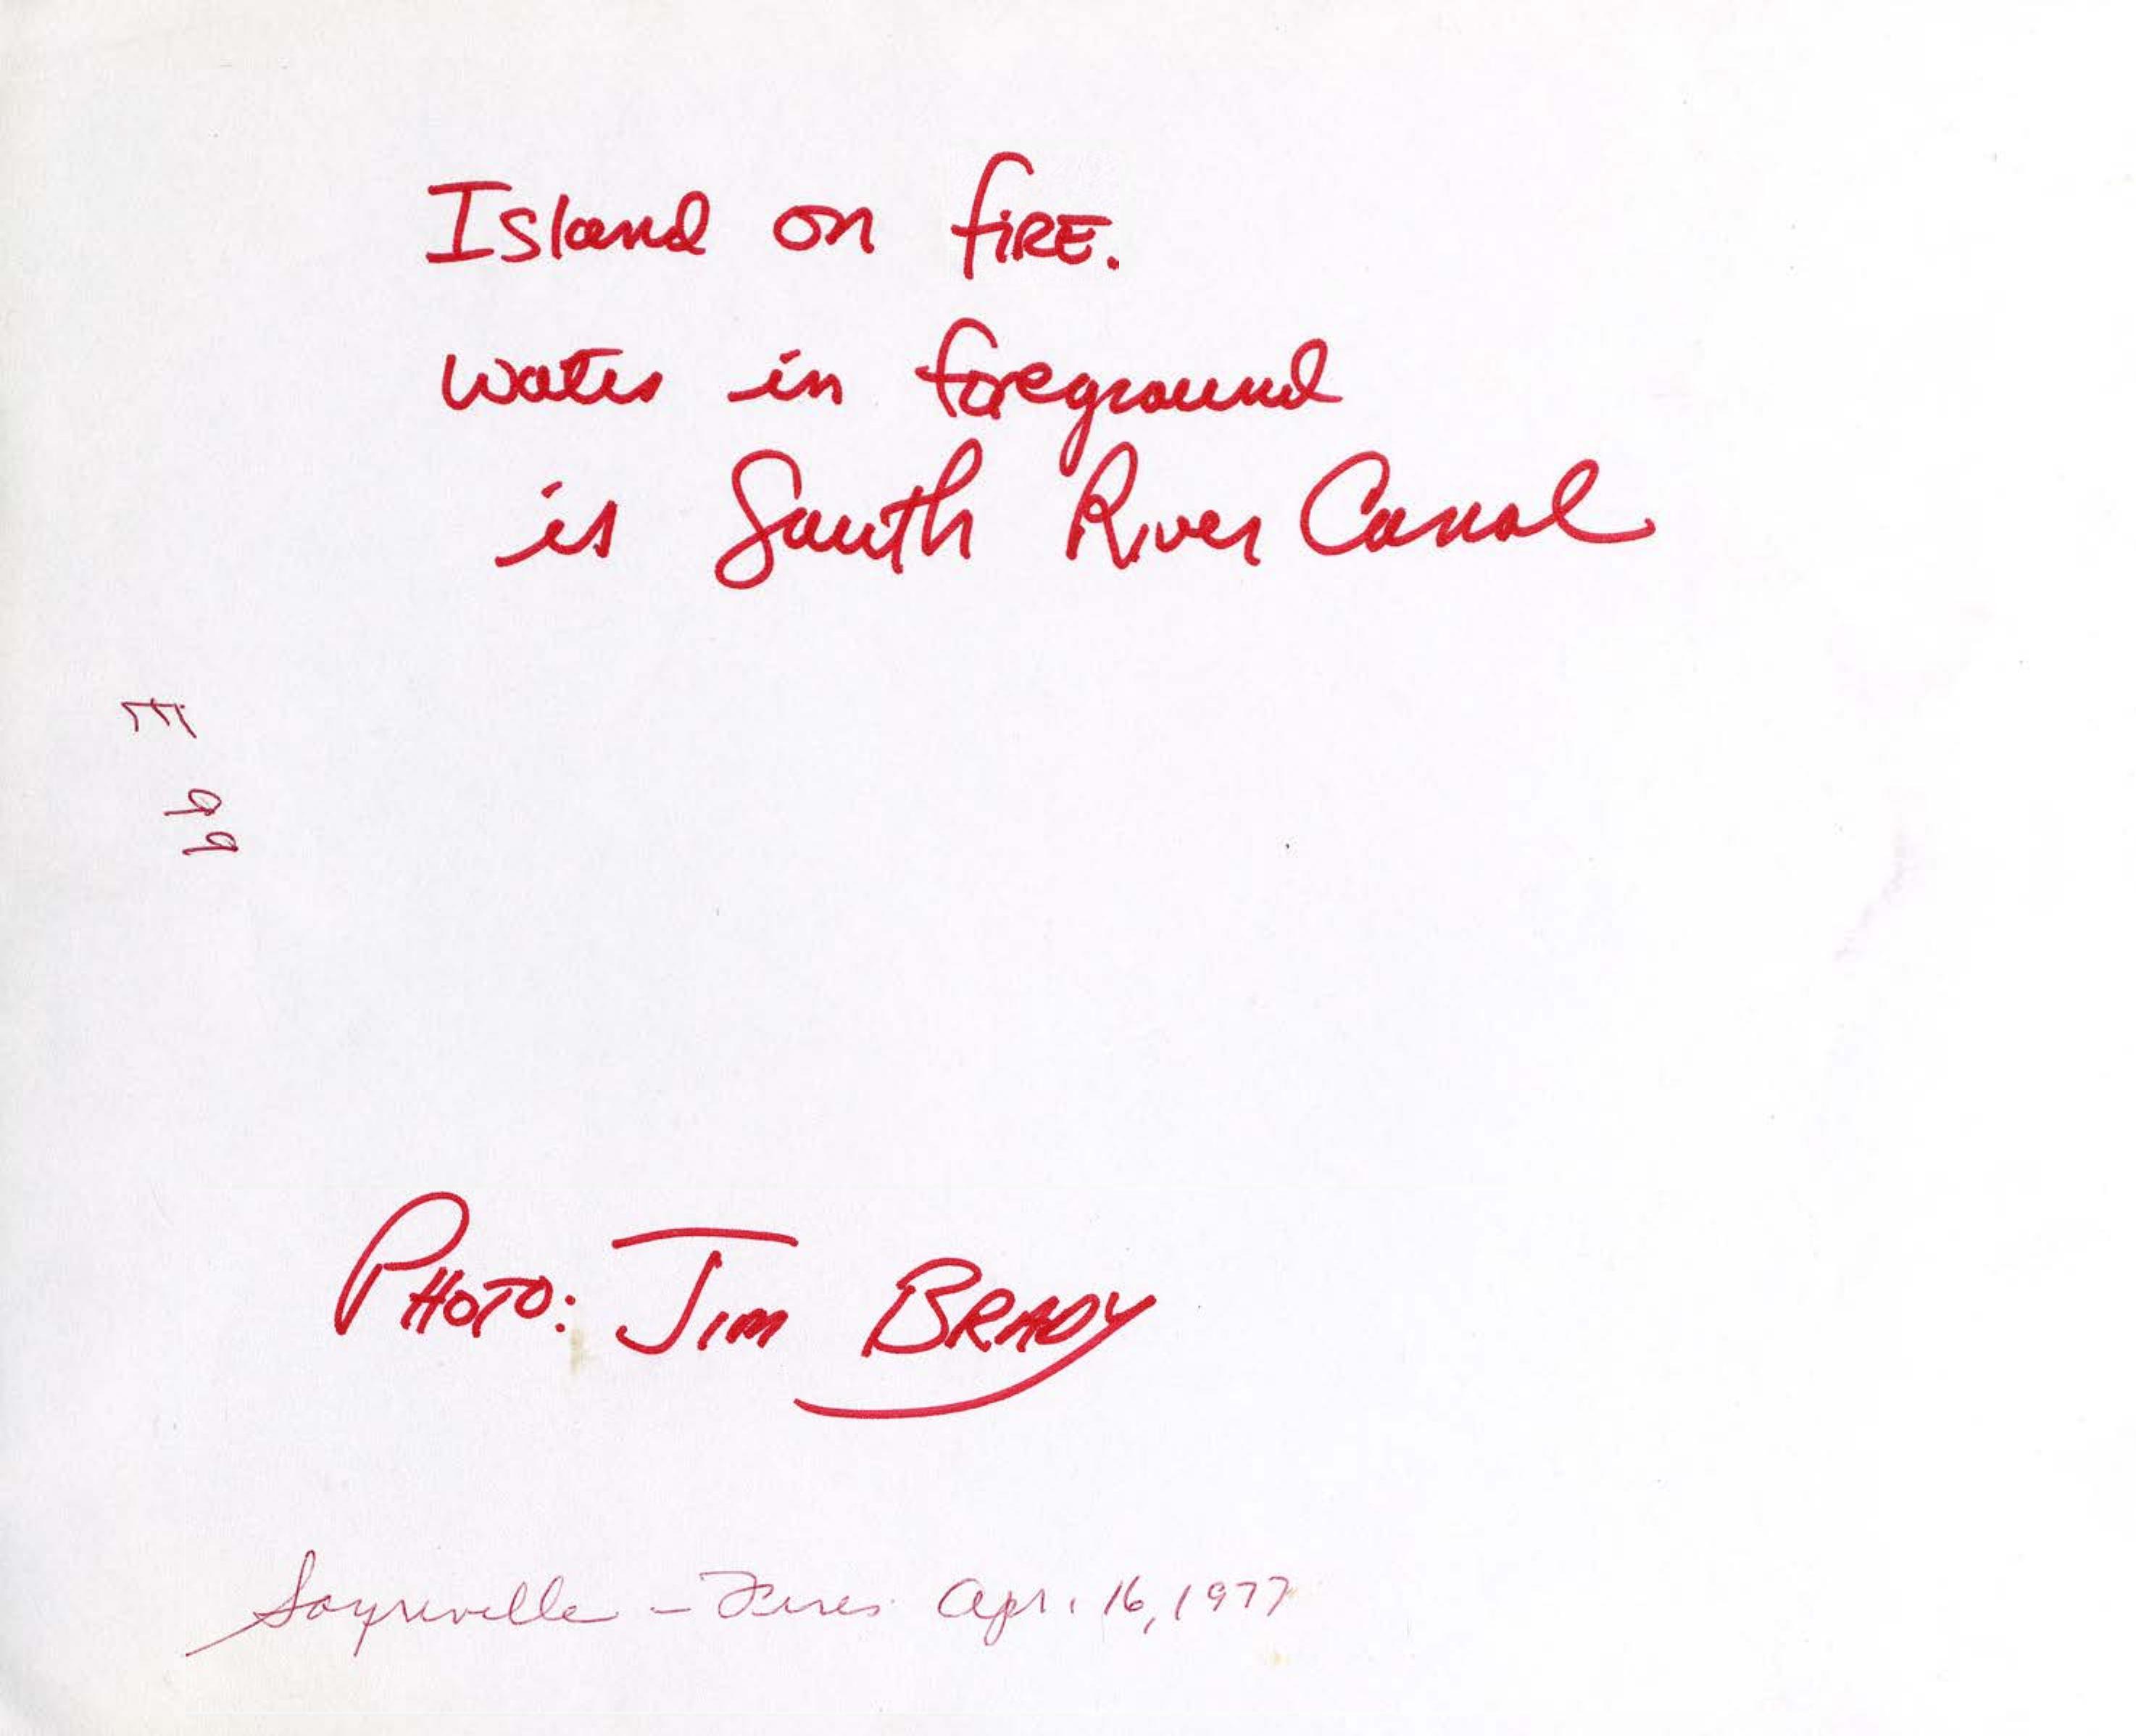 Island on fIRE.
Water in foreground
is South River Canal
E 99
PHOTO: JIM BRADY
Sayreville - Fires Apr. 16, 1977